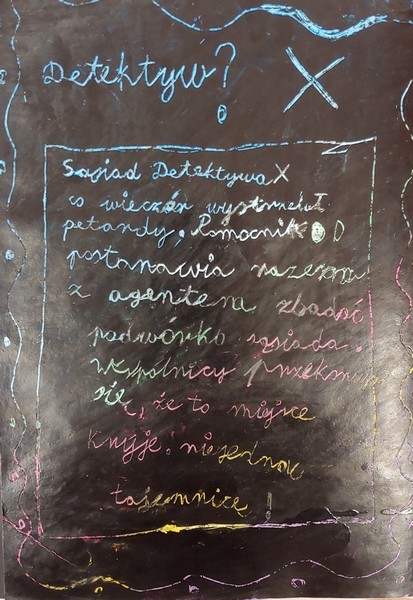 Detektyw? X
Sąsiad Detektywa X
co wieczór wystrzelał
petardy. Pomocnik D
postanawia razem
z agentem zbadać
podwórko sąsiada.
Wspólnicy przekonują
się, że to miejsce
kryje niejedną
tajemnicę!